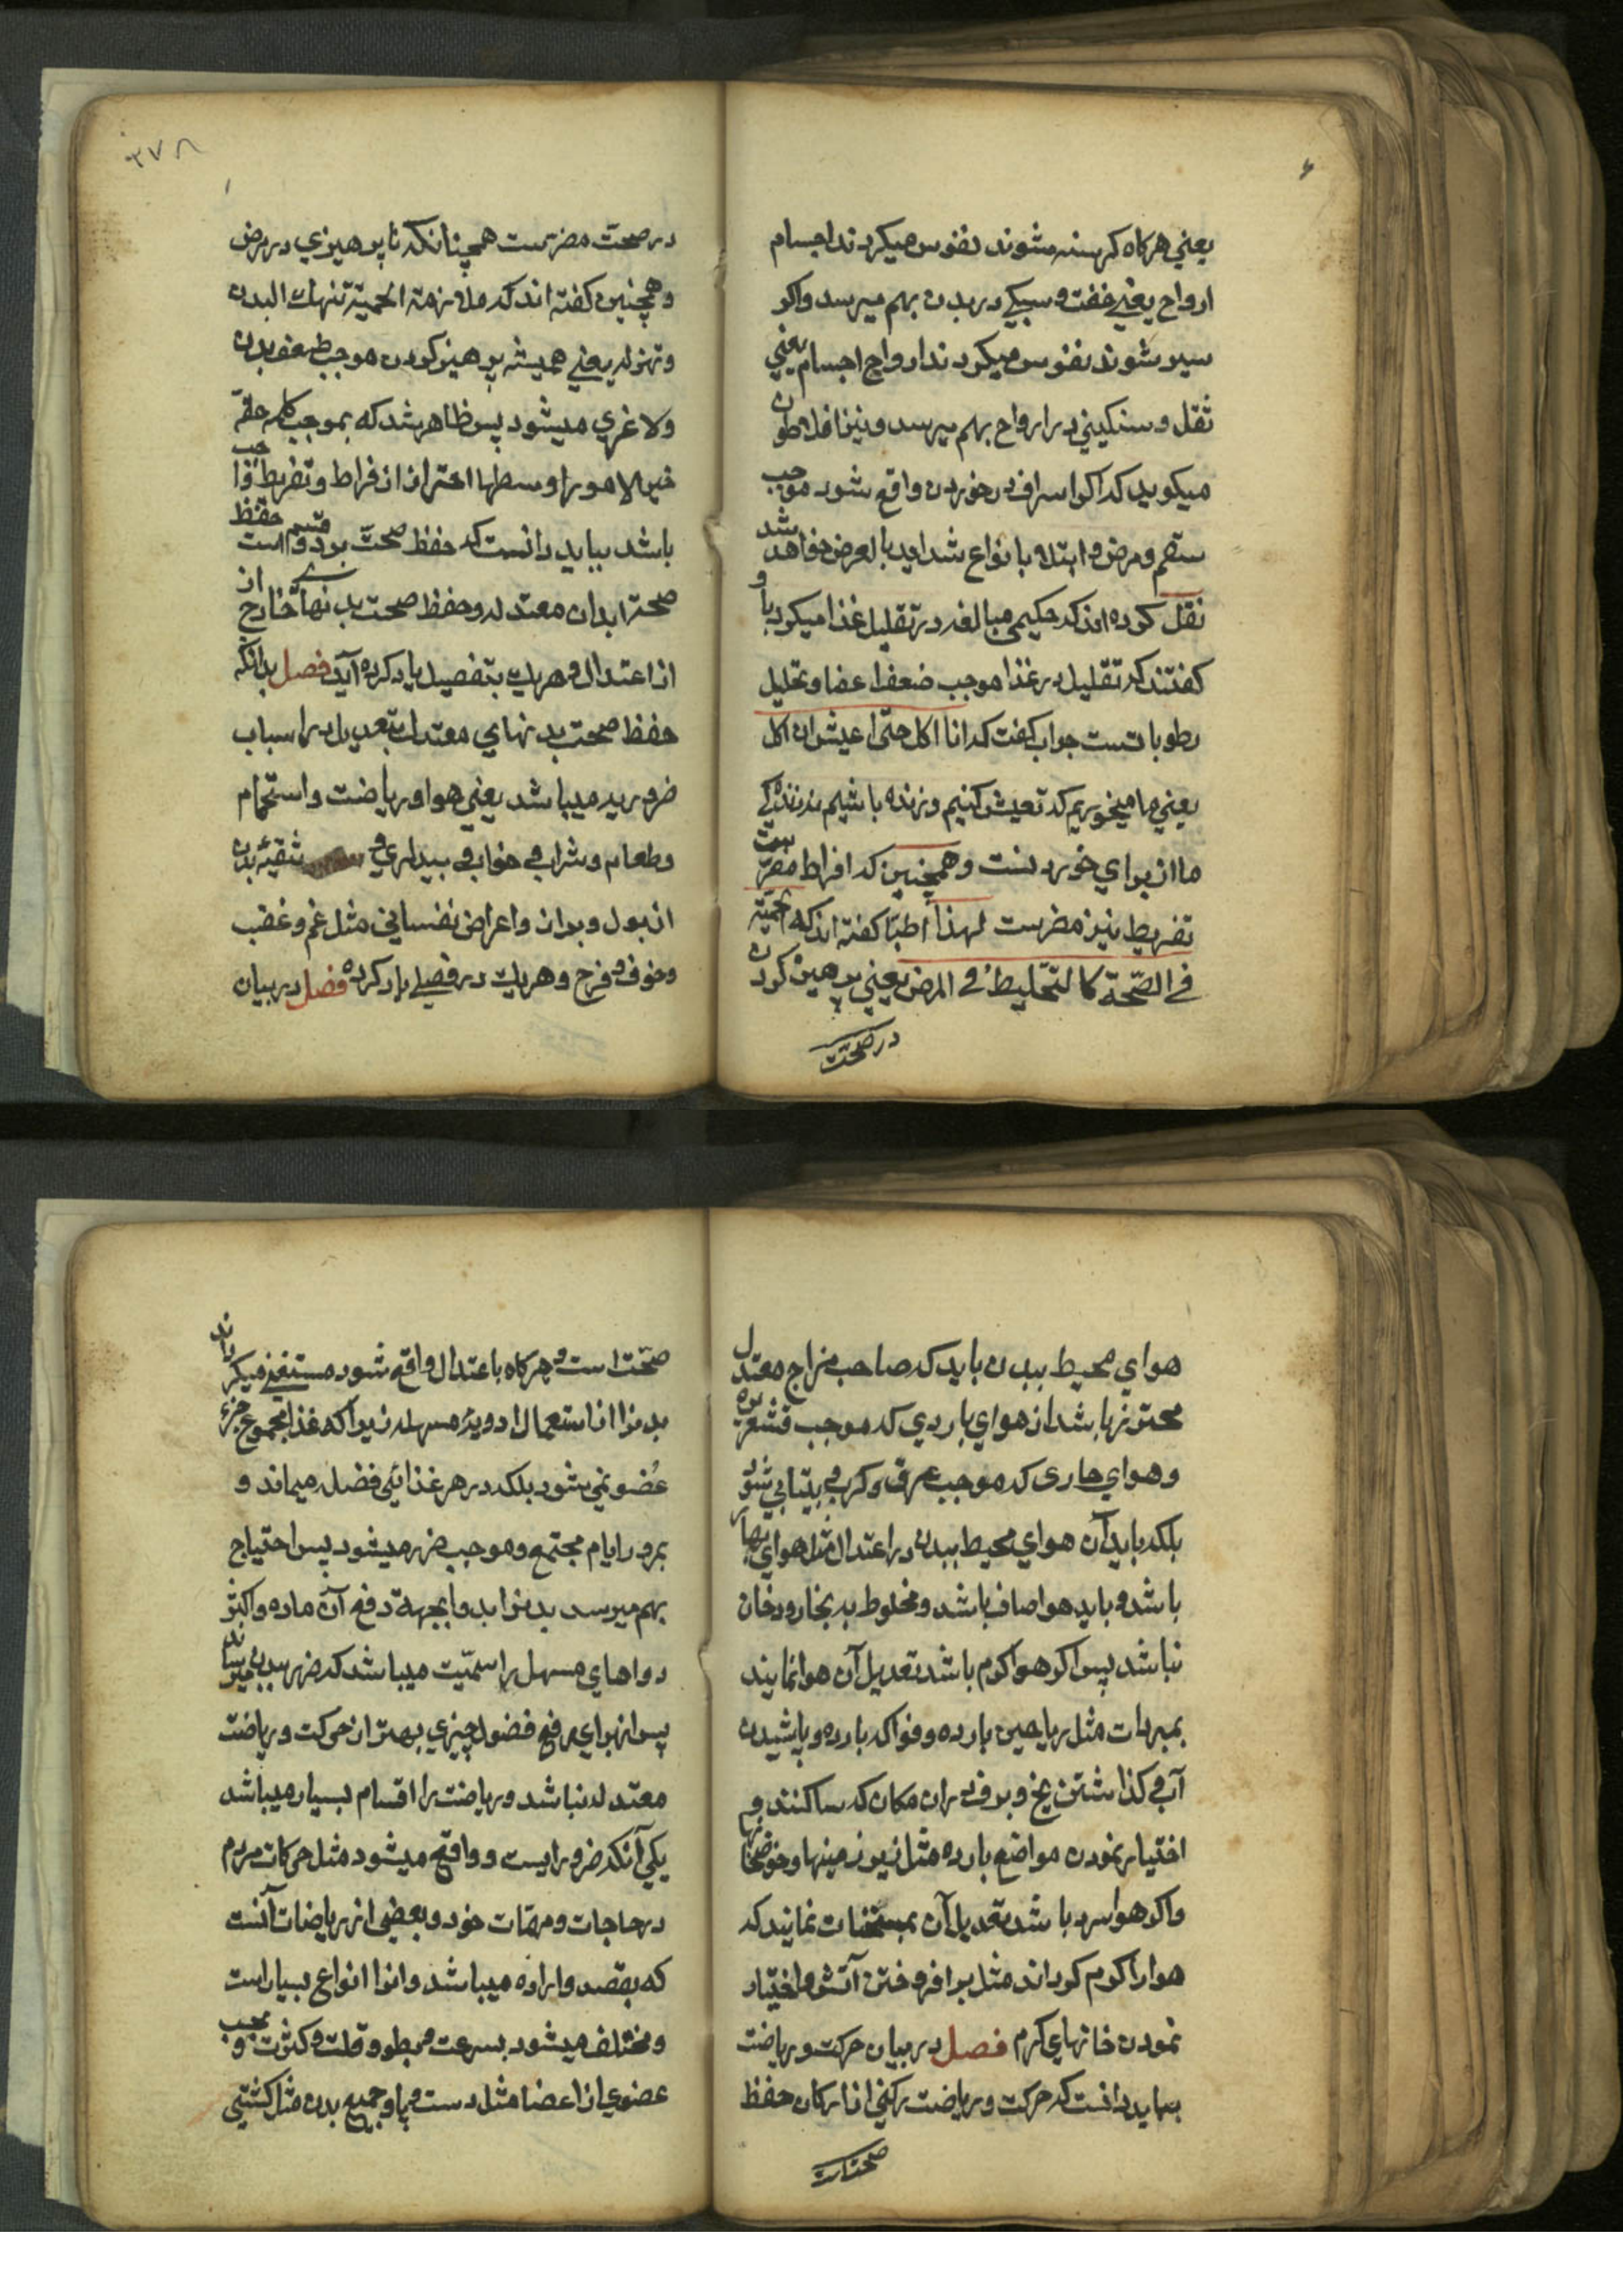 ۶
یعنی هرکاه کرسنه شوند نفوس میکردند اجسام
ارواح یعنی خفت و سبکی در بدن بهم میرسد و اکر
سیر شوند نفوس میکردند ارواح اجسام یعنی
ثقل و سنکینی در ارواح بهم میرسد و نیز افلاطون
میکوید که اکر اسراف در خوردن واقع شود موجب
سقم و مرض و ابتلاء بانواع شداید بالعرض خواهد شد
نقل کرده اند که حکیمی مبالغه در تقلیل غذا میکرد باو
کفتند که تقلیل در غذا موجب ضعف اعضا و تحلیل
رطوباتست جواب کفت که انا اکل حتی اعیش ان اکل
یعنی ما میخوریم که تعیش کنیم و زنده باشیم نه زنده کی
ما از برای خوردنست و همچنین که افراط مضر ست
تفریط نیز مضرست لهذا اطبا کفته اند که الحمیة
فی الصّحة کالتخلیط فی المرض یعنی پرهیز کردن
در صحت
۳۷۸
در صحت مضرست همچنانکه ناپرهیزی در مرض
و همچنین کفته اند که ملازمة الحمیة تنهك البدن
و تهزله یعنی همیشه پرهیز کردن موجب ضعف بدن
و لاغری میشود پس ظاهر شد که بموجب کلمه حقّه
خیر الامور اوسطها احتراز از افراط و تفریط واجب
باشد بباید دانست که حفظ صحت بر دو قسم است حفظ
صحة ابدان معتدله و حفظ صحت بدنهای خارج از
از اعتدال و هریك بتفصیل یاد کرده آید فصل بدانکه
حفظ صحت بدنهای معتدل بتعدیل در اسباب
ضروریه میباشد یعنی هوا و ریاضت و استحمام
و طعام و شراب و خواب و بیداری و تنقیه بدن
از بول و براز و اعراض نفسانی مثل غم و غضب
و خوف و فرح و هریك در فصلی یاد کرده فصل در بیان
هوای محیط ببدن باید که صاحب مزاج معتدل
محترز باشد از هوای باردی که موجب قشعریره
و هوای حاری که موجب عرق و کرب و بیتابی شود
بلکه باید آن هوای محیط ببدن در اعتدال مثل هوای بهار
باشد و باید هوا صاف باشد و مخلوط به بخار و دخان
نباشد پس اکر هوا کرم باشد تعدیل آن هوا نمایند
بمبردات مثل ریاحین بارده و فواکه بارده و پاشیدن
آب و کذاشتن یخ و برف در ان مکان که ساکنند و
اختیار نمودن مواضع بارده مثل زیر زمینها و حوضخانها
و اکر هوا سرد باشد تعدیل آن بمسخنات نمایند که
هوا را کرم کرداند مثل بر افروختن آتش و اختیار
نمودن خانهای کرم فصل در بیان حرکت و ریاضت
بباید دانست که حرکت و ریاضت رکنی از ارکان حفظ
صحت است
صحّت است و هرکاه باعتدال واقع شود مستغنی میکرداند
بدن را از استعمال ادویه مسهله زیرا که غذا بمجموع جزء
عُضو نمی شود بلکه در هر غذائی فضله میماند و
بمرور ایام مجتمع و موجب ضرر میشود پس احتیاج
بهم میرسد بدن را بدوا بجهة دفع آن ماده و اکثر
دواهای مسهل را سمیّت میباشد که ضرر ببدن میرساند
پس از برای رفع فضول چیزی بهتر از حرکت و ریاضت
معتدله نباشد و ریاضت را اقسام بسیار میباشد
یکی آنکه ضروریست و واقع میشود مثل حرکات مردم
در حاجات و مهمّات خود و بعضی از ریاضات آنست
که بقصد و اراده میباشد و انرا انواع بسیار است
و مختلف میشود بسرعت و بطوء و قلت و کثرت و بحسب
عضوی از اعضا مثل دست و پا و جمیع بدن مثل کشتی